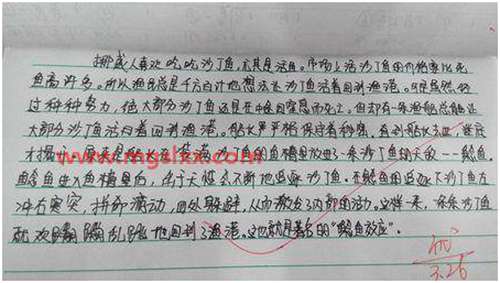 挪威人喜欢吃沙丁鱼,尤其是活鱼。市场上活沙丁鱼的价格要比死
鱼高许多。所以渔民总是千方百计地想法让沙丁鱼活着回到渔港。可是虽然经
过种种努力,绝大部分沙丁鱼还是在中途因窒息而死亡。但却有一条渔船总能让
大部分沙丁鱼活着回到渔港。船长严格保守着秘密,直到船长去世,谜底
才揭开。原来是船长在装满沙丁鱼的鱼槽里放进了一条沙丁鱼的天敌——鲶鱼。
www.mgslxx.com
鲶鱼进入鱼槽里后,由于天性会不断地追逐沙丁鱼。在鲶鱼的追逐下沙丁鱼左
冲右突,拼命游动,四处躲避,从而激发了内部的活力。这样一来,一条条沙丁鱼
就欢蹦乱跳地回到了渔港。这也就是著名的“鲶鱼效应”。
优
3.26